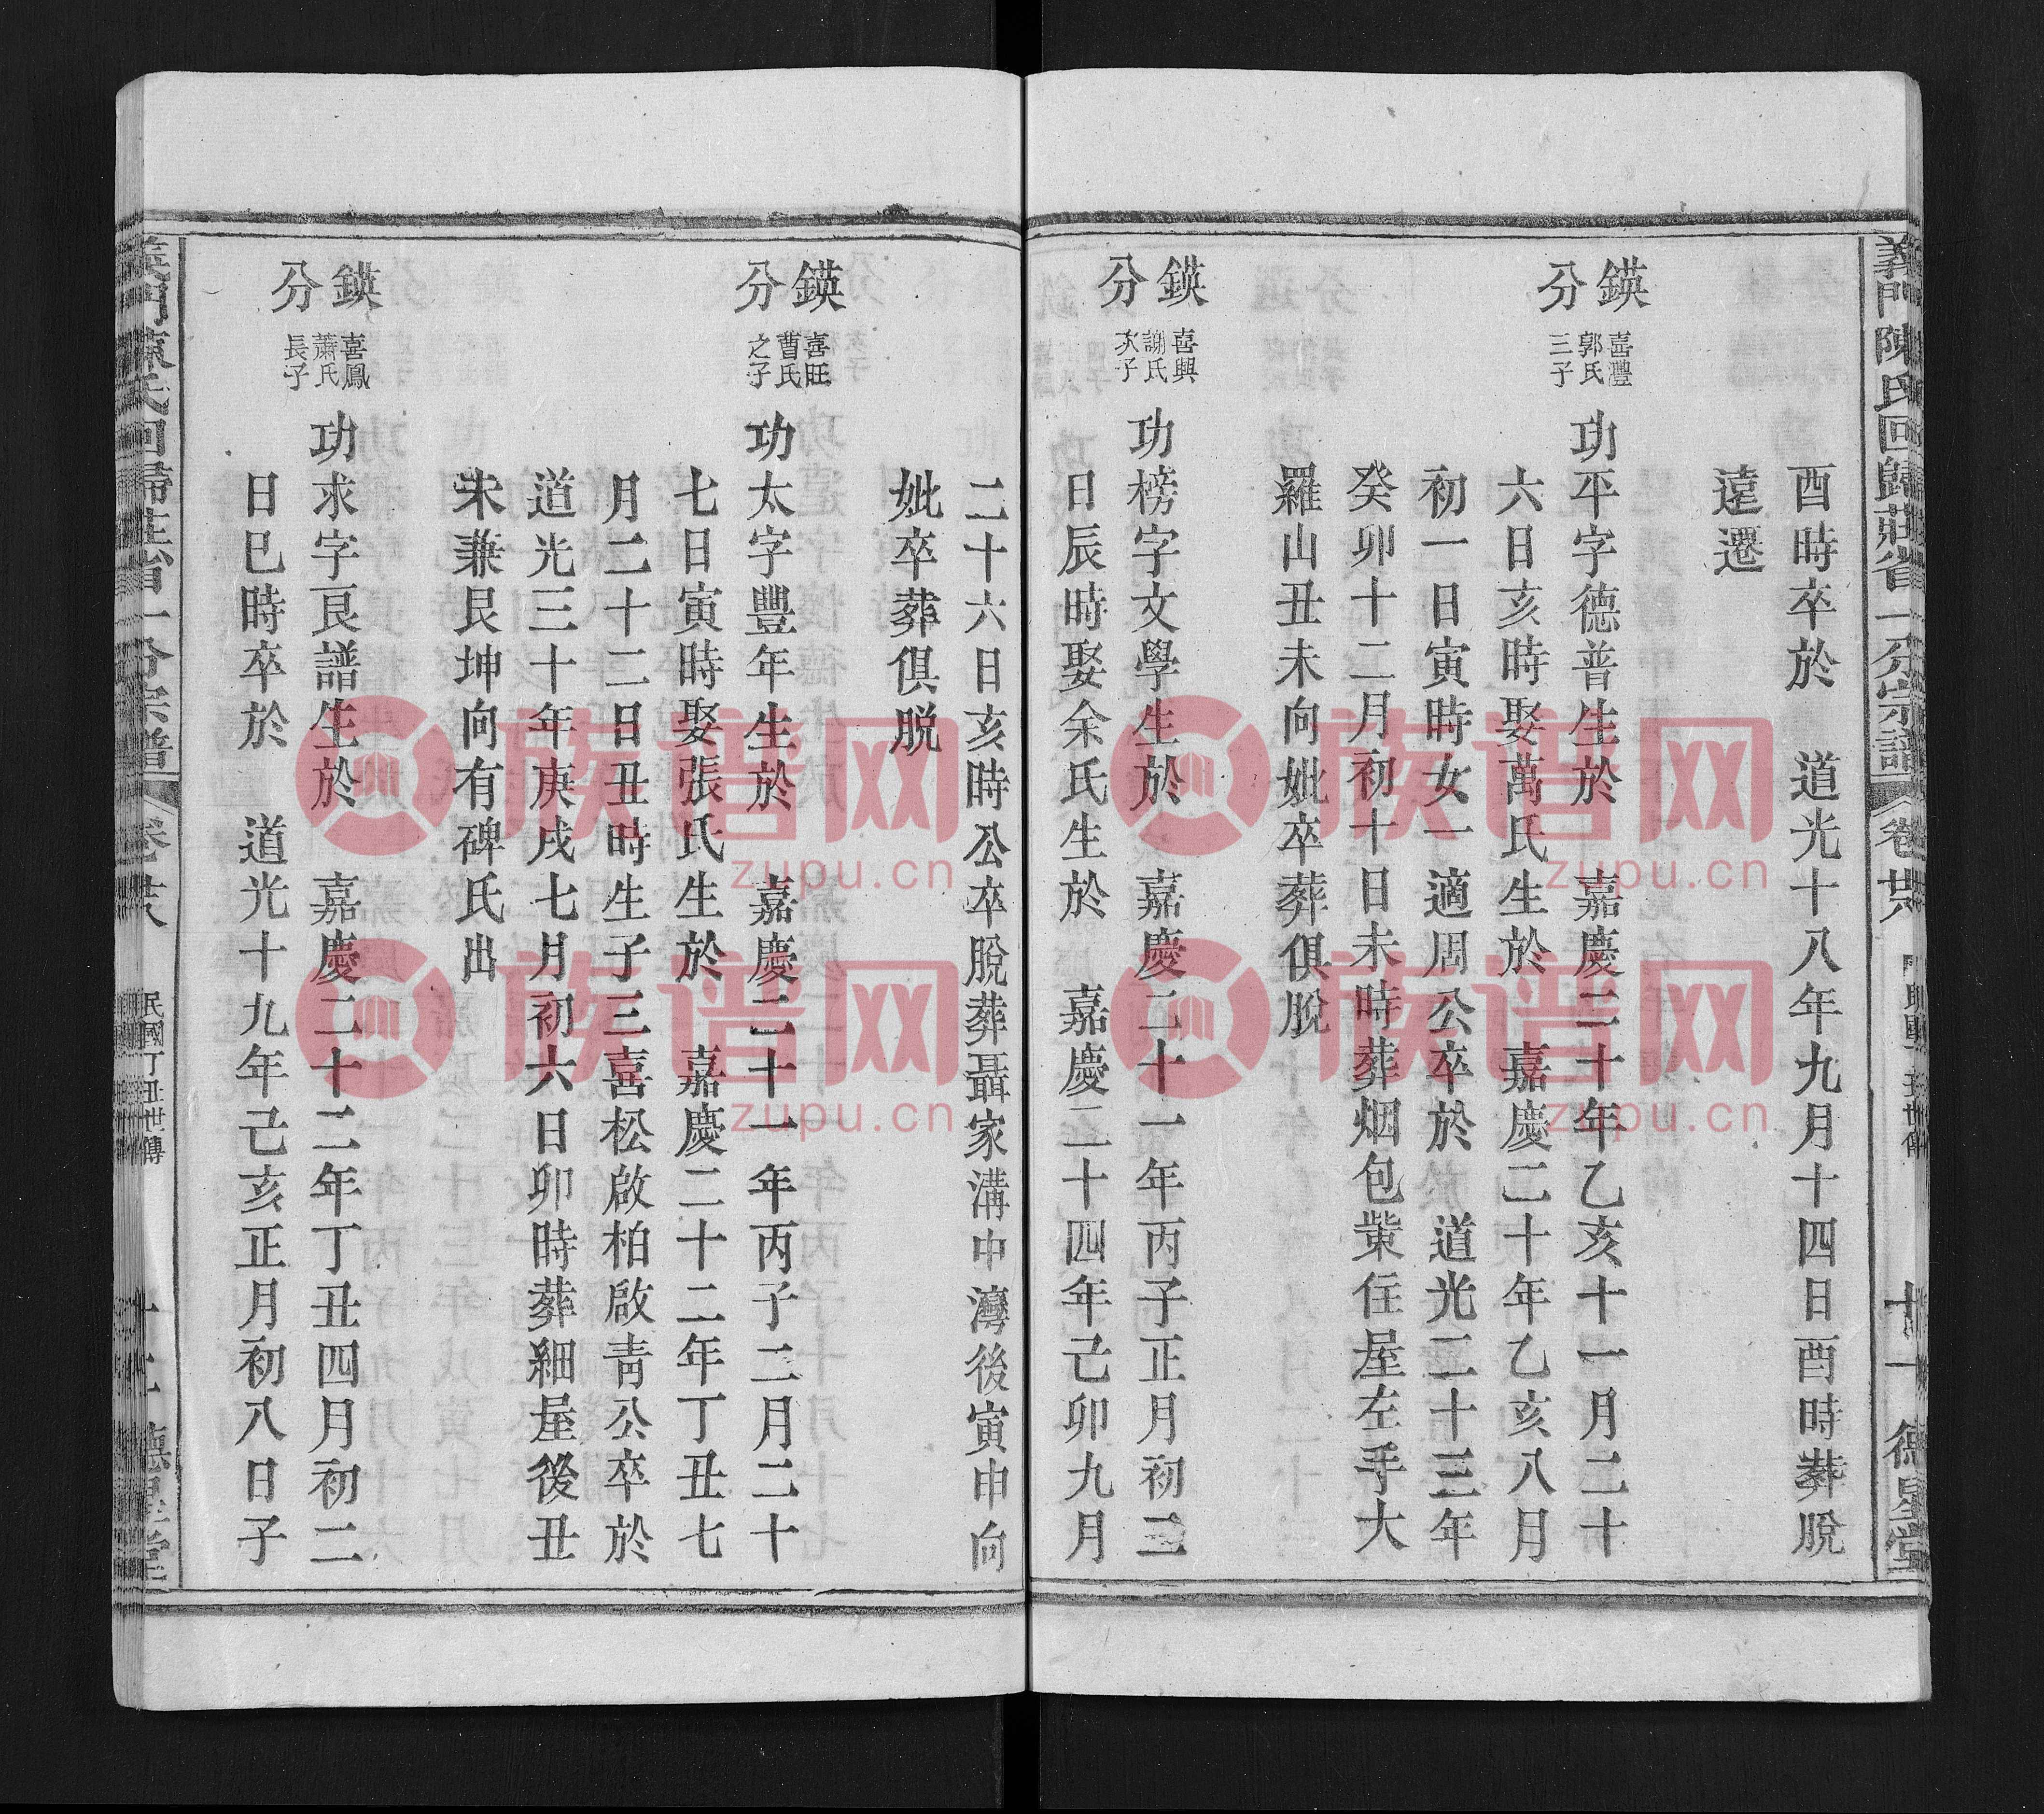 義門陳氏回歸莊省一分宗譜
卷廿六
十一
德星堂
酉時卒於　道光十八年九月十四日酉時葬脫
遠遷
鍈分
喜灃
郭氏
三子
功平字德普生於　嘉慶二十年乙亥十一月二十
六日亥時娶萬氏生於　嘉慶二十年乙亥八月
初一日寅時女一適周公卒於　道光二十三年
癸卯十二月初十日未時葬烟包棠住屋左手大
羅山丑未向妣卒葬俱脫
鍈分
喜興
謝氏
次子
功榜字文學生於　嘉慶二十一年丙子正月初三
日辰時娶余氏生於　嘉慶二十四年己卯九月
二十六日亥時公卒脫葬聶家溝中灣後寅申向
妣卒葬俱脫
鍈分
喜旺
曹氏
之子
功太字豐年生於　嘉慶二十一年丙子二月二十
七日寅時娶張氏生於　嘉慶二十二年丁丑七
月二十二日丑時生子三喜松啟柏啟青公卒於
道光三十年庚戌七月初六日卯時葬細屋後丑
未兼艮坤向有碑氏出
鍈分
喜鳳
蕭氏
長子
功求字良譜生於　嘉慶二十二年丁丑四月初二
日巳時卒於　道光十九年己亥正月初八日子
義門陳氏回歸莊省一分宗譜
卷廿六
民國丁丑世傳
德星堂
族谱网
zupu.cn
族谱网
zupu.cn
族谱网
zupu.cn
族谱网
zupu.cn